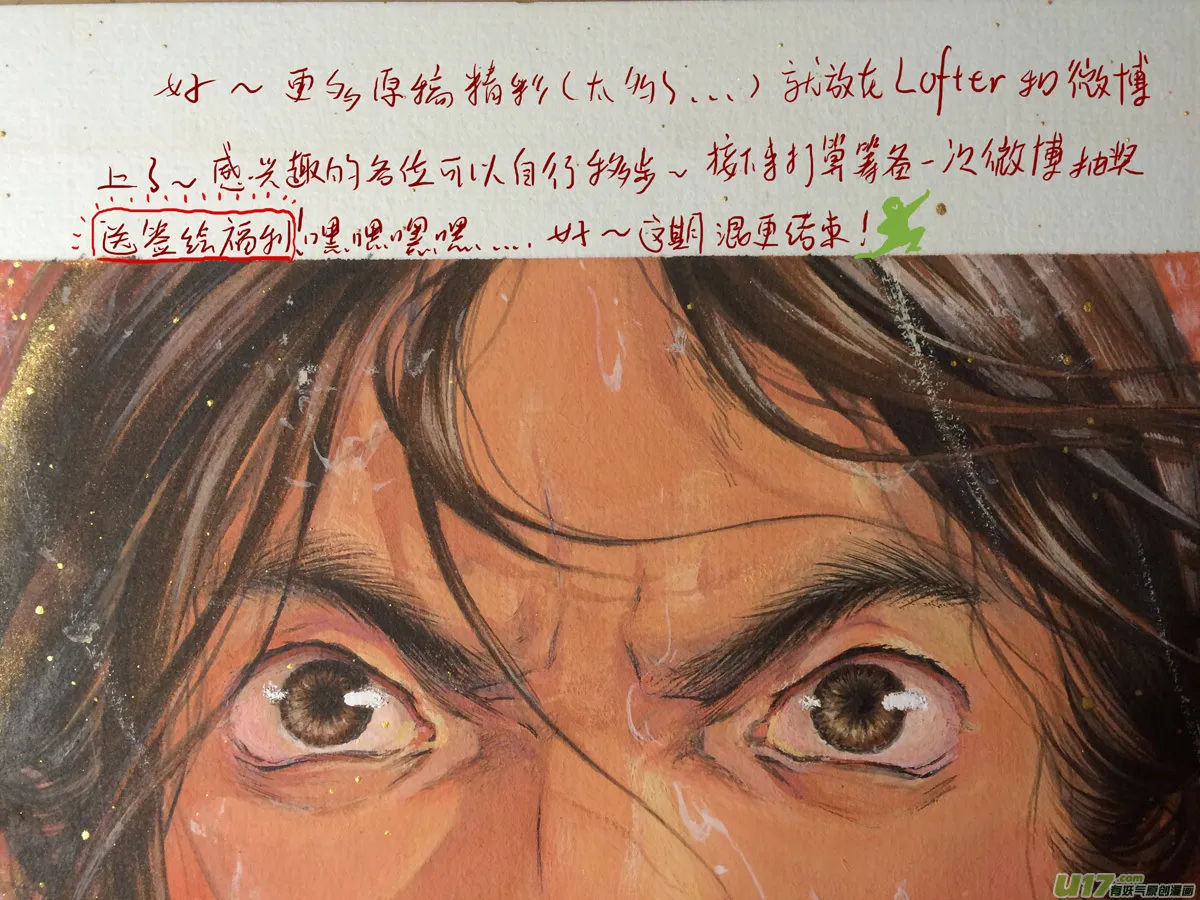 好～更多原稿精彩(太多了...)就放在Lofter和微博
上了～感兴趣的各位可以自行移步～接下来打算筹备一次微博抽奖
送签绘福利!嘿嘿嘿嘿.... 好～这期混更结束!
U17.com
有妖气原创漫画